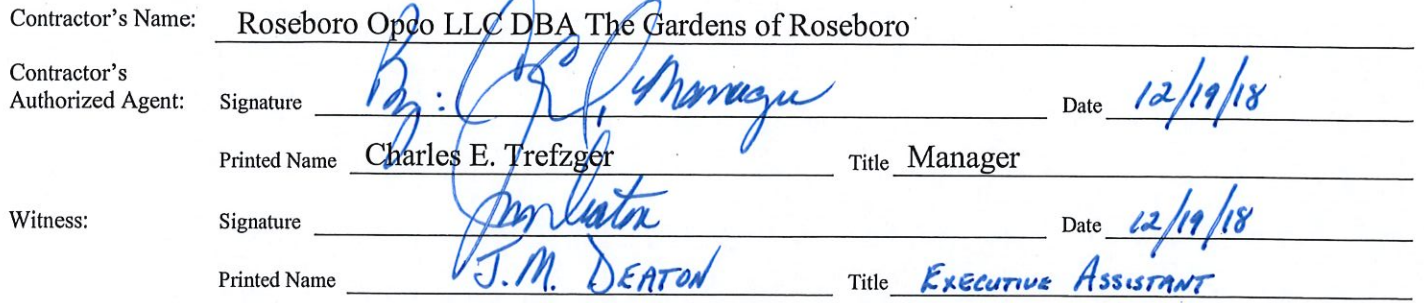 Contractor's Name: Roseboro Opco LLC DBA The Gardens of Roseboro
Contractor's
Authorized Agent: Signature By: Manager Date 12/19/18
Printed Name Charles E. Trefzger Title Manager
Witness: Signature JM Deaton Date 12/19/18
Printed Name J.M. DEATON Title EXECUTIVE ASSISTANT